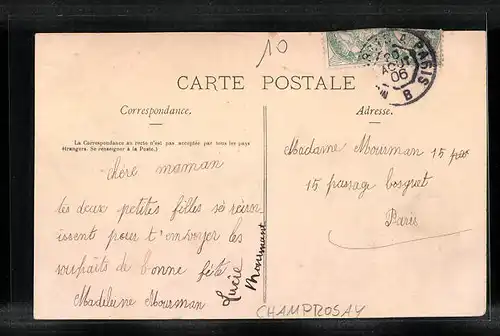 10
PARIS
AOUT
06
B
CARTE POSTALE
Correspondance.
La Correspondance au recto n'est pas acceptée par tous les pays
étrangers. Se renseigner à la Poste.)
chère maman
tes deux petites filles se réiroi-
issent pour t'envoyer les
souhaits de bonne fête
Madeleine Mourman
Lucie
Mourman
Adresse.
Madame Mourman 15 pas
15 passage bosquet
Paris
CHAMPROSAY